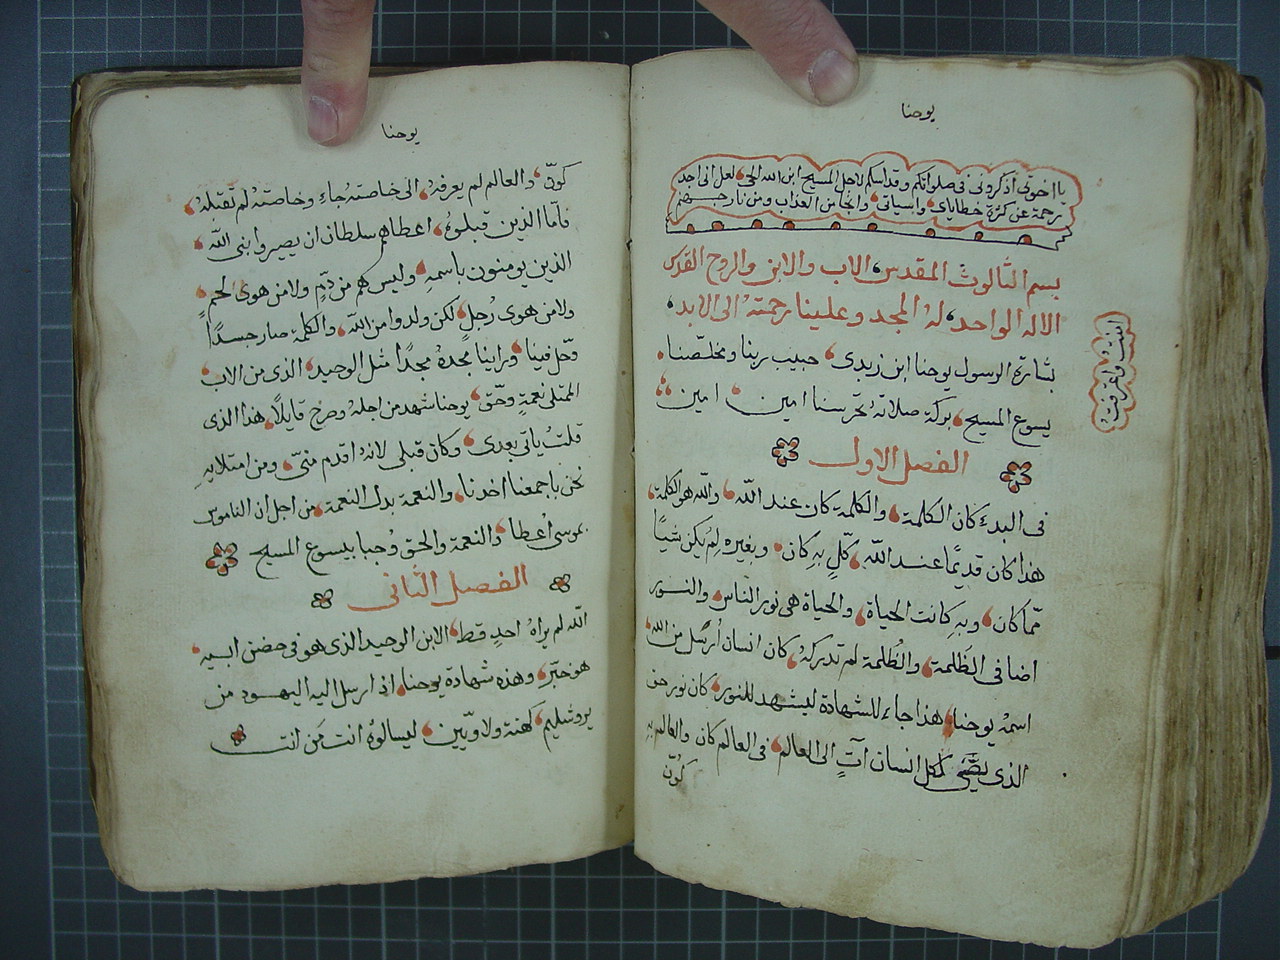 يوحنا
يا اخوتى اذكرونى فى صلواتكم وقداسكم لاجل المسيح ابن الله الحى لعل انى اجد
رحمة عن كثرة خطاياى واسياتى وانجا من العذاب ومن نار جهنم
بسم الثالوث المقدس الاب والابن والروح القدس
الاله الواحد له المجد وعلينا رحمته الى الابد
بشارة الرسول يوحنا ابن زبدى حبيب ربنا ومخلصنا
يسوع المسيح بركة صلاته تحرسنا امين امين
الفصل الاول
فى البدء كان الكلمة والكلمة كان عند الله والله هو الكلمة
هذا كان قديمًا عند الله كلٍ بهِ كان وبغيره لم يكن شيًا
ممّا كان وبهِ كانت الحياة والحياة هى نور الناس والنور
اضا فى الظلمة والظُلمة لم تدركهُ كان انسان اُرسل من الله
اسمهُ يوحنا هذا جاء للشهادة ليشهد للنور كان نور حق
الذى يضّى لكل انسان آتٍ الى العالم فى العالم كان والعالم بهِ
كُوّن
يوحنا
كوّن والعالم لم يعرفهُ الى خاصته جاء وخاصتهُ لم تقبلهُ
فامّا الذين قبلوهُ اعطاهم سلطان ان يصيروا بنى الله
الذين يومنون باسمهِ وليس هم من دمٍ ولا من هوى لحمٍ
ولا من هوى رُجلٍ لكن ولدوا من الله والكلمة صار جسدًا
وحّل فينا وراينا مجدهُ مجدًا مثل الوحيد الذى من الاب
الممتلى نعمةٍ وحقّ يوحنا شهد من اجله وصرخ قايلاً هذا الذى
قلتُ ياتى بعدى وكان قبلى لانهُ اقدم منّى ومن امتلايهِ
نحن باجمعنا اخذنا والنعمة بدل النعمة من اجل ان الناموس
بموسى اُعطا والنعمة والحق وُجبا بيسوع المسيح
الفصل الثانى
الله لم يراهُ احدٍ قط الابن الوحيد الذى هو فى حضن ابيهِ
هو خبّر وهذه شهادة يوحنا اذ ارسل اليه اليهود من
يروشليم كهنة ولاويّين ليسالوهُ انت مَن انت